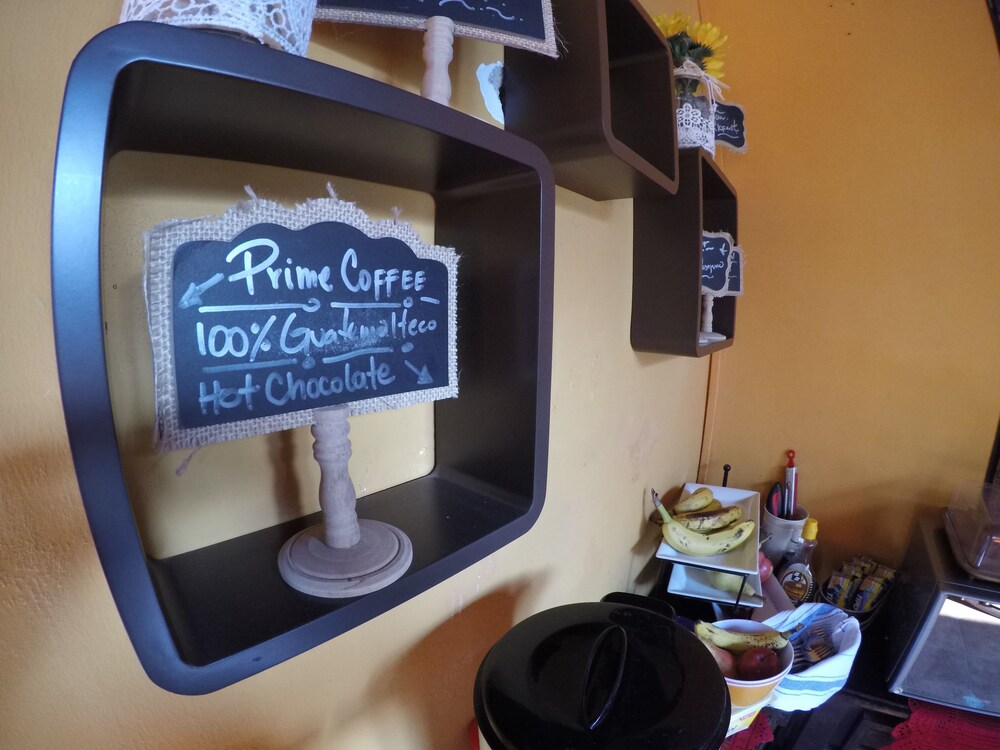 Prime COFFEE
100% Guatemalteco
Hot Chocolate